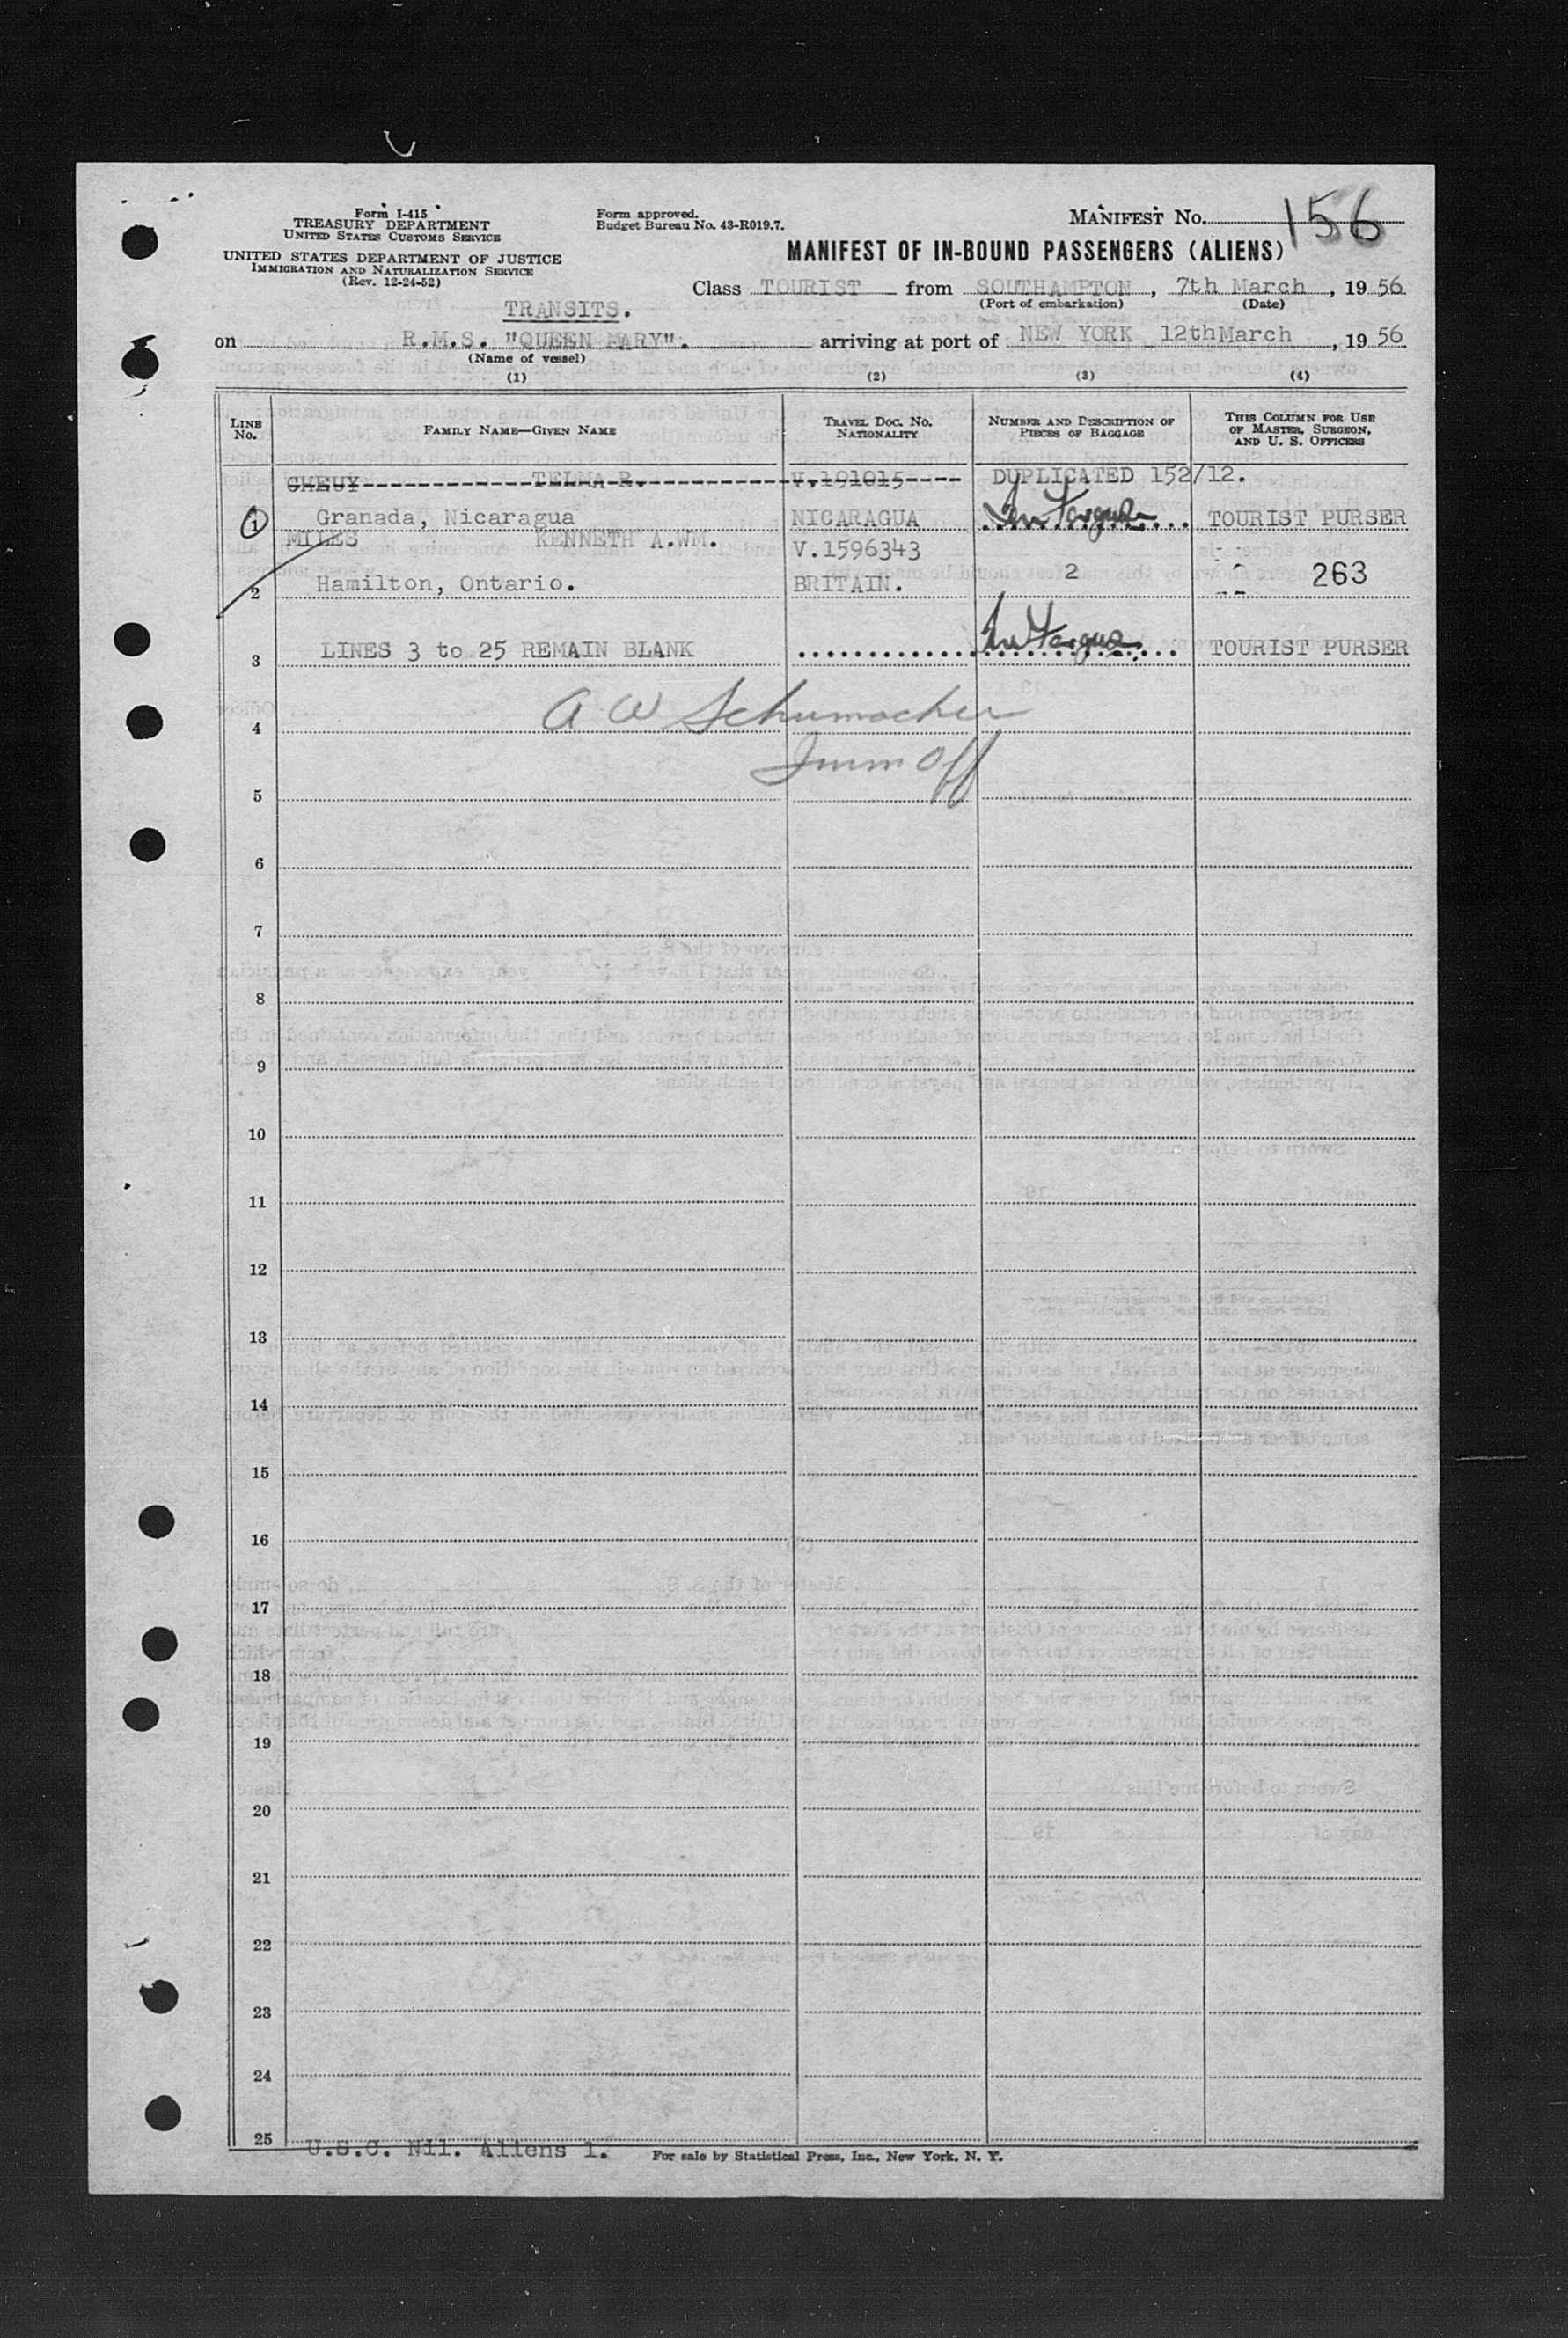 Form I-415
TREASURY DEPARTMENT
UNITED STATES CUSTOMS SERVICE
UNITED STATES DEPARTMENT OF JUSTICE
IMMIGRATION AND NATURALIZATION SERVICE
(Rev. 12-24-52)
Form approved.
Budget Bureau No. 43-R019.7.
MANIFEST No. 156
MANIFEST OF IN-BOUND PASSENGERS (ALIENS)
Class TOURIST from SOUTHAMPTON, 7th March, 19 56
(Port of embarkation) (Date)
TRANSITS.
on R.M.S. "QUEEN MARY". arriving at port of NEW YORK 12th March, 19 56
(Name of vessel)
(1) (2) (3) (4)
LINE No. FAMILY NAME—GIVEN NAME TRAVEL DOC. NO. NATIONALITY NUMBER AND DESCRIPTION OF PIECES OF BAGGAGE THIS COLUMN FOR USE OF MASTER, SURGEON, AND U. S. OFFICERS
TELMA R. V.191015 DUPLICATED 152/12.
1 Granada, Nicaragua NICARAGUA TOURIST PURSER
MILES KENNETH A.WM. V.1596343
2 Hamilton, Ontario. BRITAIN. 2 263
3 LINES 3 to 25 REMAIN BLANK TOURIST PURSER
4 A W Schumacher
Imm Off
5
6
7
8
9
10
11
12
13
14
15
16
17
18
19
20
21
22
23
24
25
U.S.C. Nil. Aliens 1. For sale by Statistical Press, Inc., New York, N. Y.